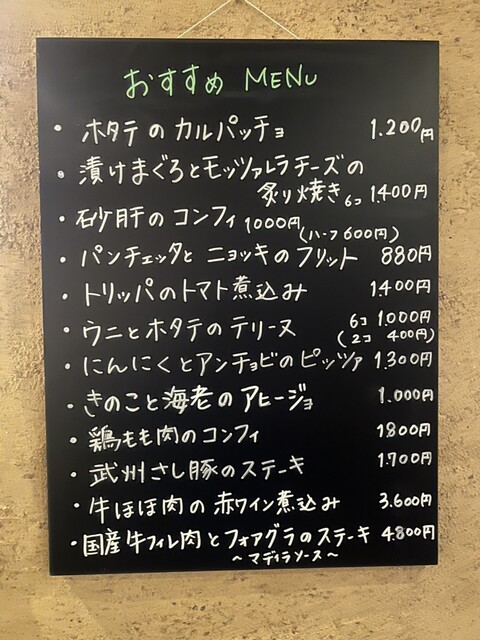 おすすめ MENU
・ ホタテのカルパッチョ 1.200円
・ 漬けまぐろとモッツァレラチーズの
炙り焼き 6コ 1.400円
・ 砂肝のコンフィ 1000円
(ハーフ 600円)
・ パンチェッタと ニョッキのフリット 880円
・ トリッパのトマト煮込み 1.400円
・ ウニとホタテのテリーヌ 6コ 1.000円
(2コ 400円)
・ にんにくとアンチョビのピッツァ 1.300円
・ きのこと海老のアヒージョ 1.000円
・ 鶏もも肉のコンフィ 1.800円
・ 武州さし豚のステーキ 1.700円
・ 牛ほほ肉の赤ワイン煮込み 3.600円
・ 国産牛フィレ肉とフォアグラのステーキ 4.800円
～マディラソース～